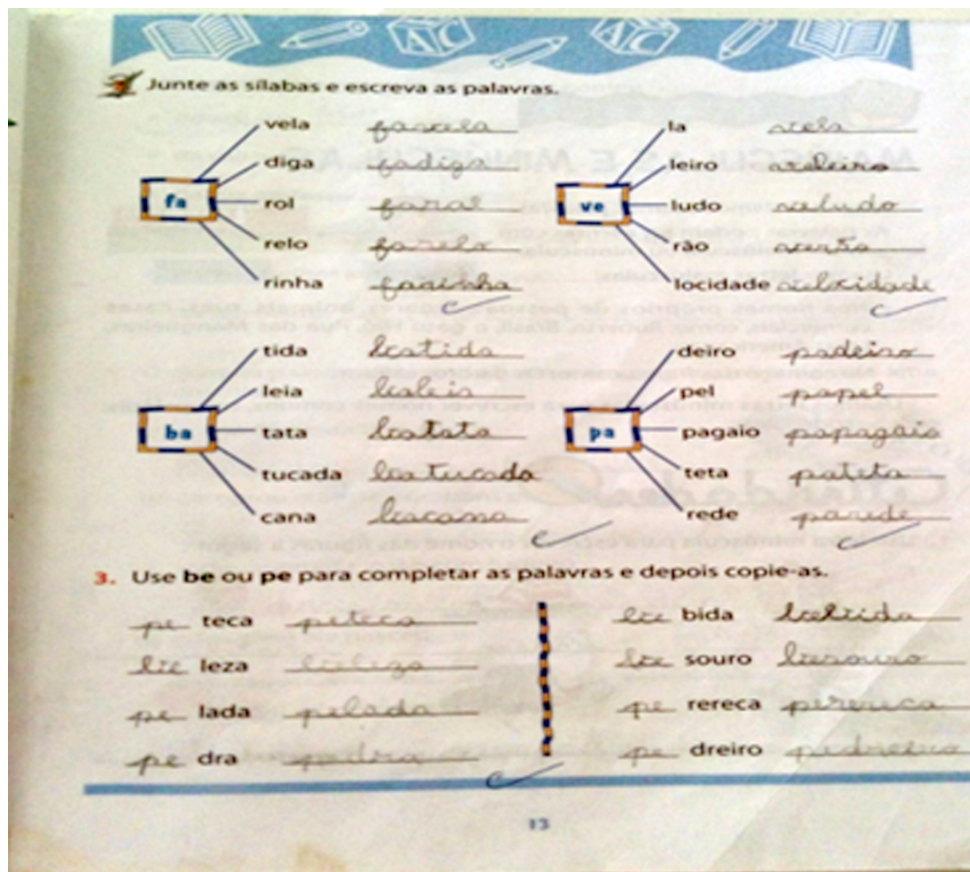 ABC
ABC
Junte as sílabas e escreva as palavras.
fa
vela favela
diga fadiga
rol farol
relo farelo
rinha farinha
ve
la vela
leiro veleiro
ludo veludo
rão verão
locidade velocidade
ba
tida batida
leia baleia
tata batata
tucada batucada
cana bacana
pa
deiro padeiro
pel papel
pagaio papagaio
teta pateta
rede parede
3. Use be ou pe para completar as palavras e depois copie-as.
pe teca peteca
be leza beleza
pe lada pelada
pe dra pedra
be bida bebida
be souro besouro
pe rereca perereca
pe dreiro pedreiro
13